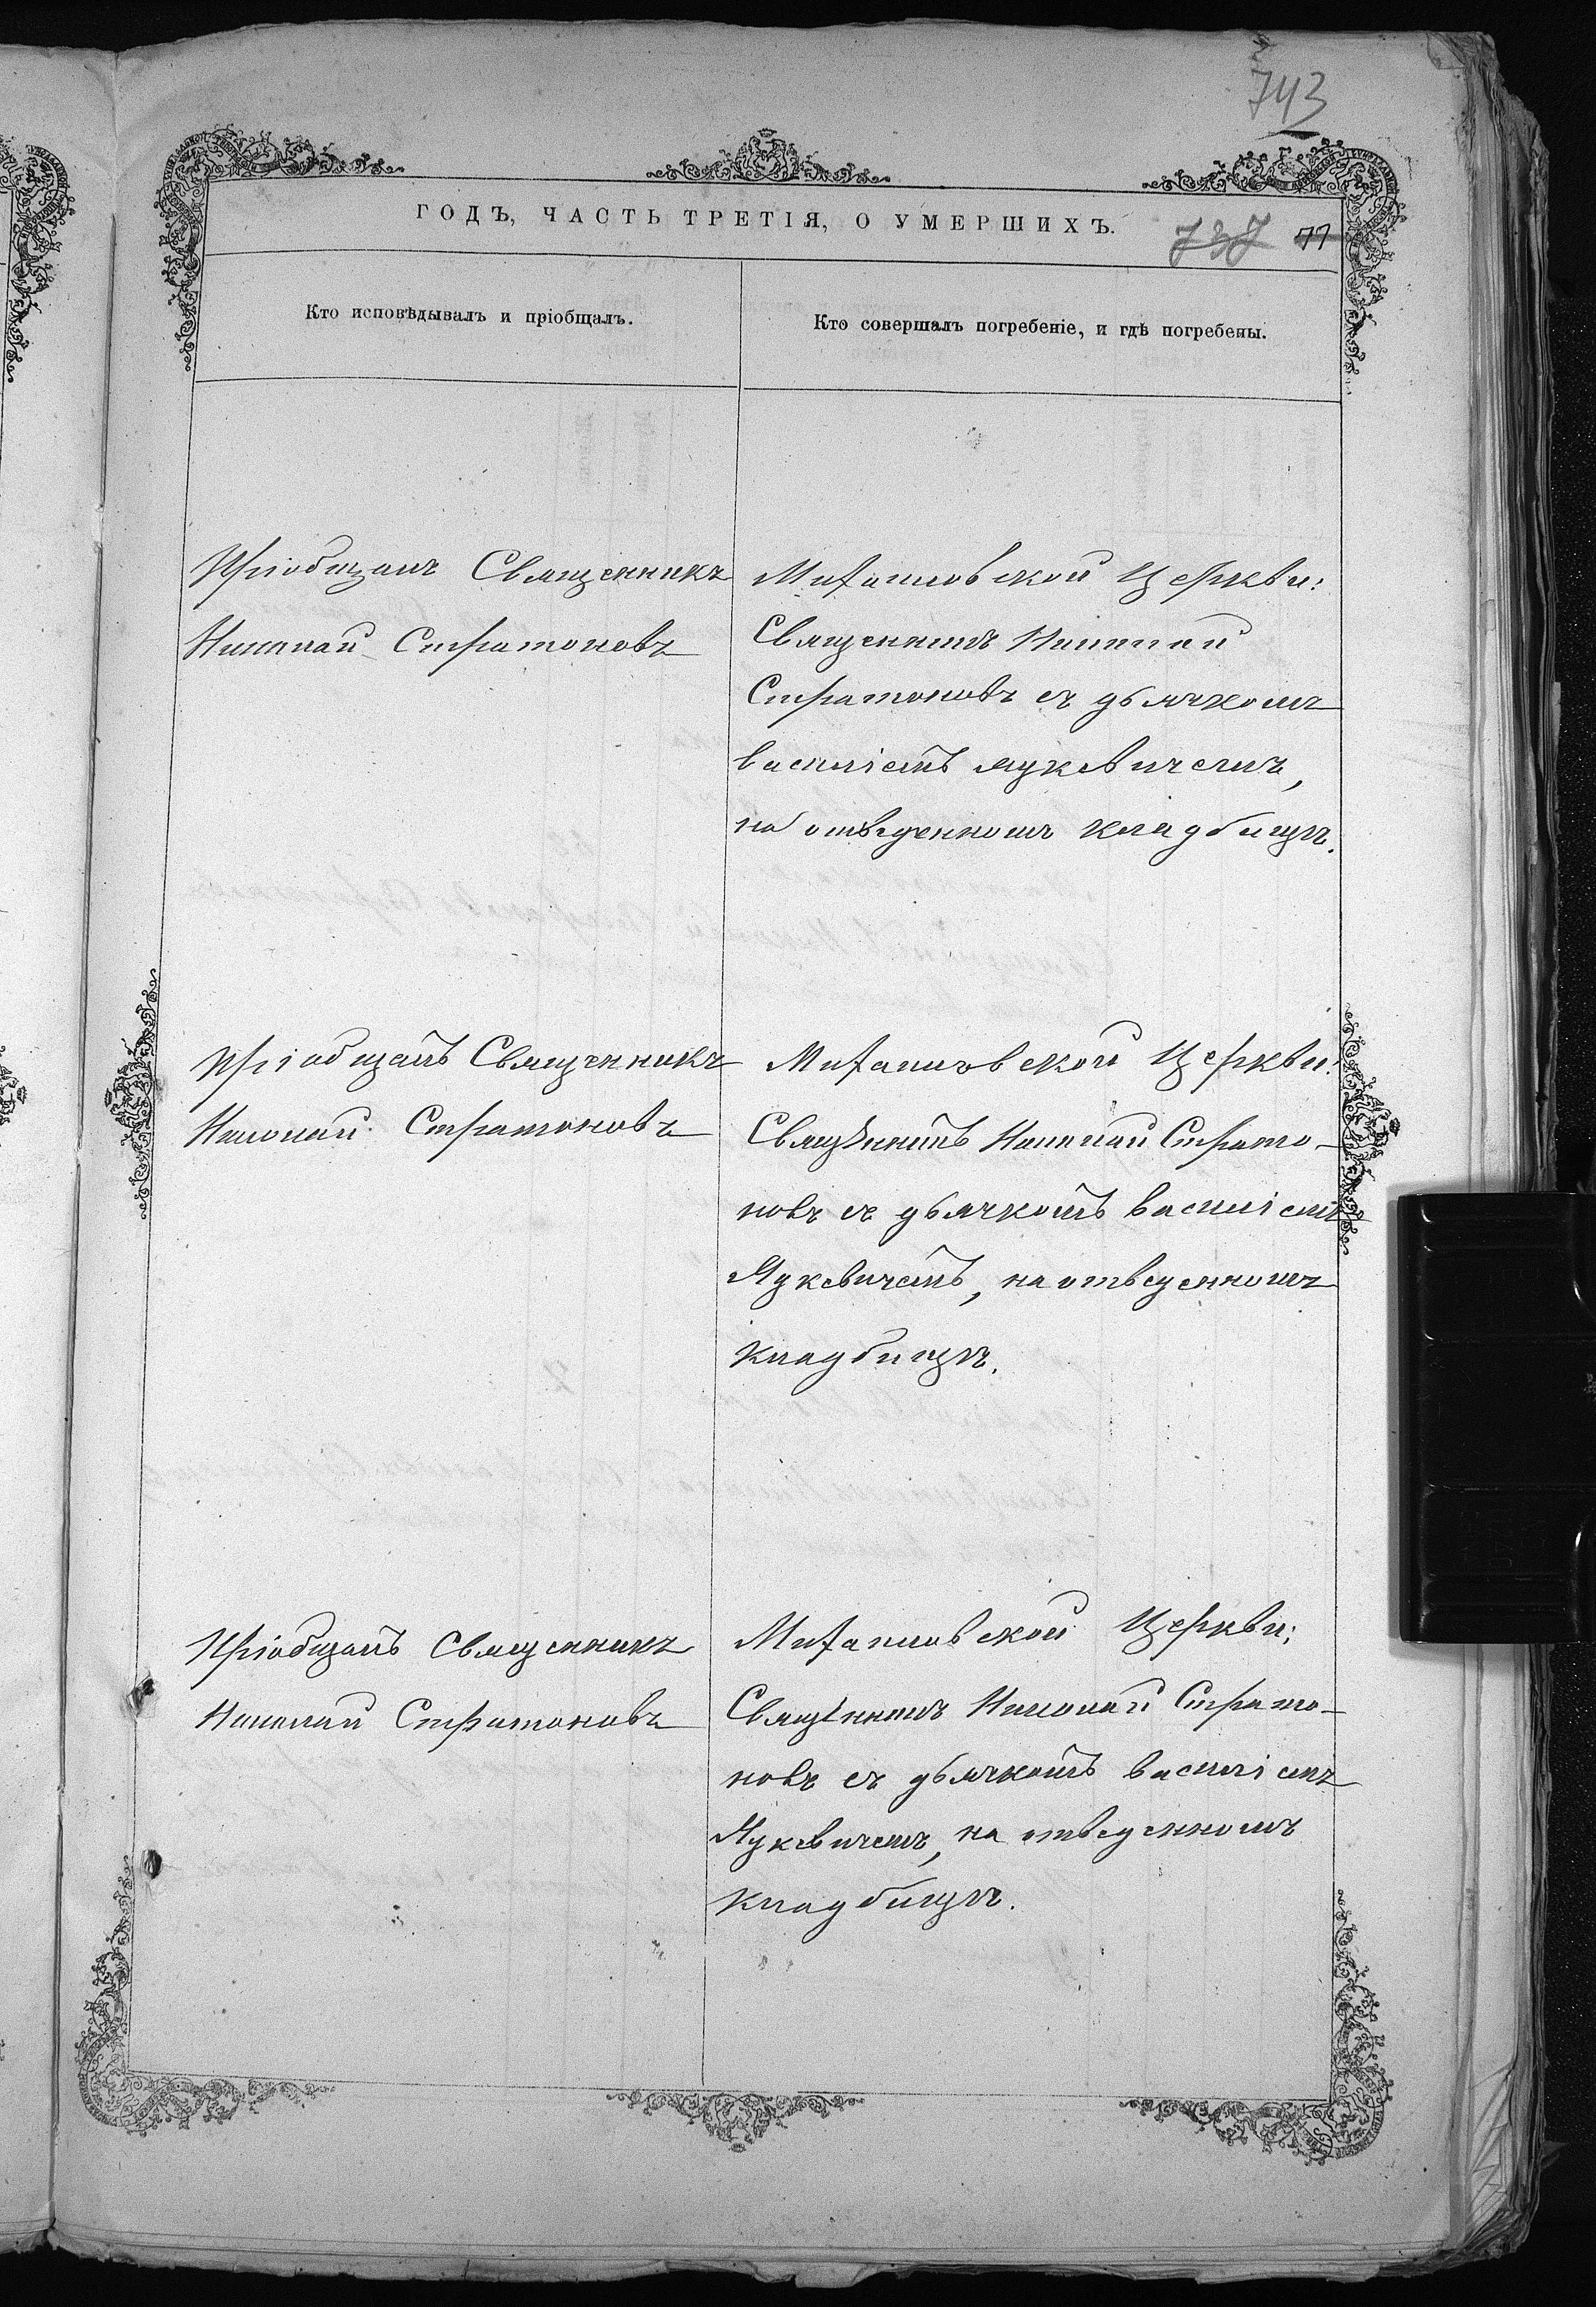 743
ГОДЪ, ЧАСТЬ ТРЕТІЯ, О УМЕРШИХЪ.
737 77
Кто исповѣдывалъ и пріобщалъ.
Кто совершалъ погребеніе, и гдѣ погребены.
Пріобщалъ Священникъ
Николай Стратоновъ
Михаиловской Церкви:
Священникъ Николай
Стратоновъ съ дьячкомъ
Василіемъ Луксвичемъ,
на отведенномъ кладбищѣ.
Пріобщалъ Священникъ
Николай Стратоновъ
Михаиловской Церкви:
Священникъ Николай Страто-
новъ съ дьячкомъ Василіемъ
Луксвичемъ, на отведенномъ
кладбищѣ.
Пріобщалъ Священникъ
Николай Стратоновъ
Михаиловской Церкви:
Священникъ Николай Страто-
новъ съ дьячкомъ Василіемъ
Луксвичемъ, на отведенномъ
кладбищѣ.